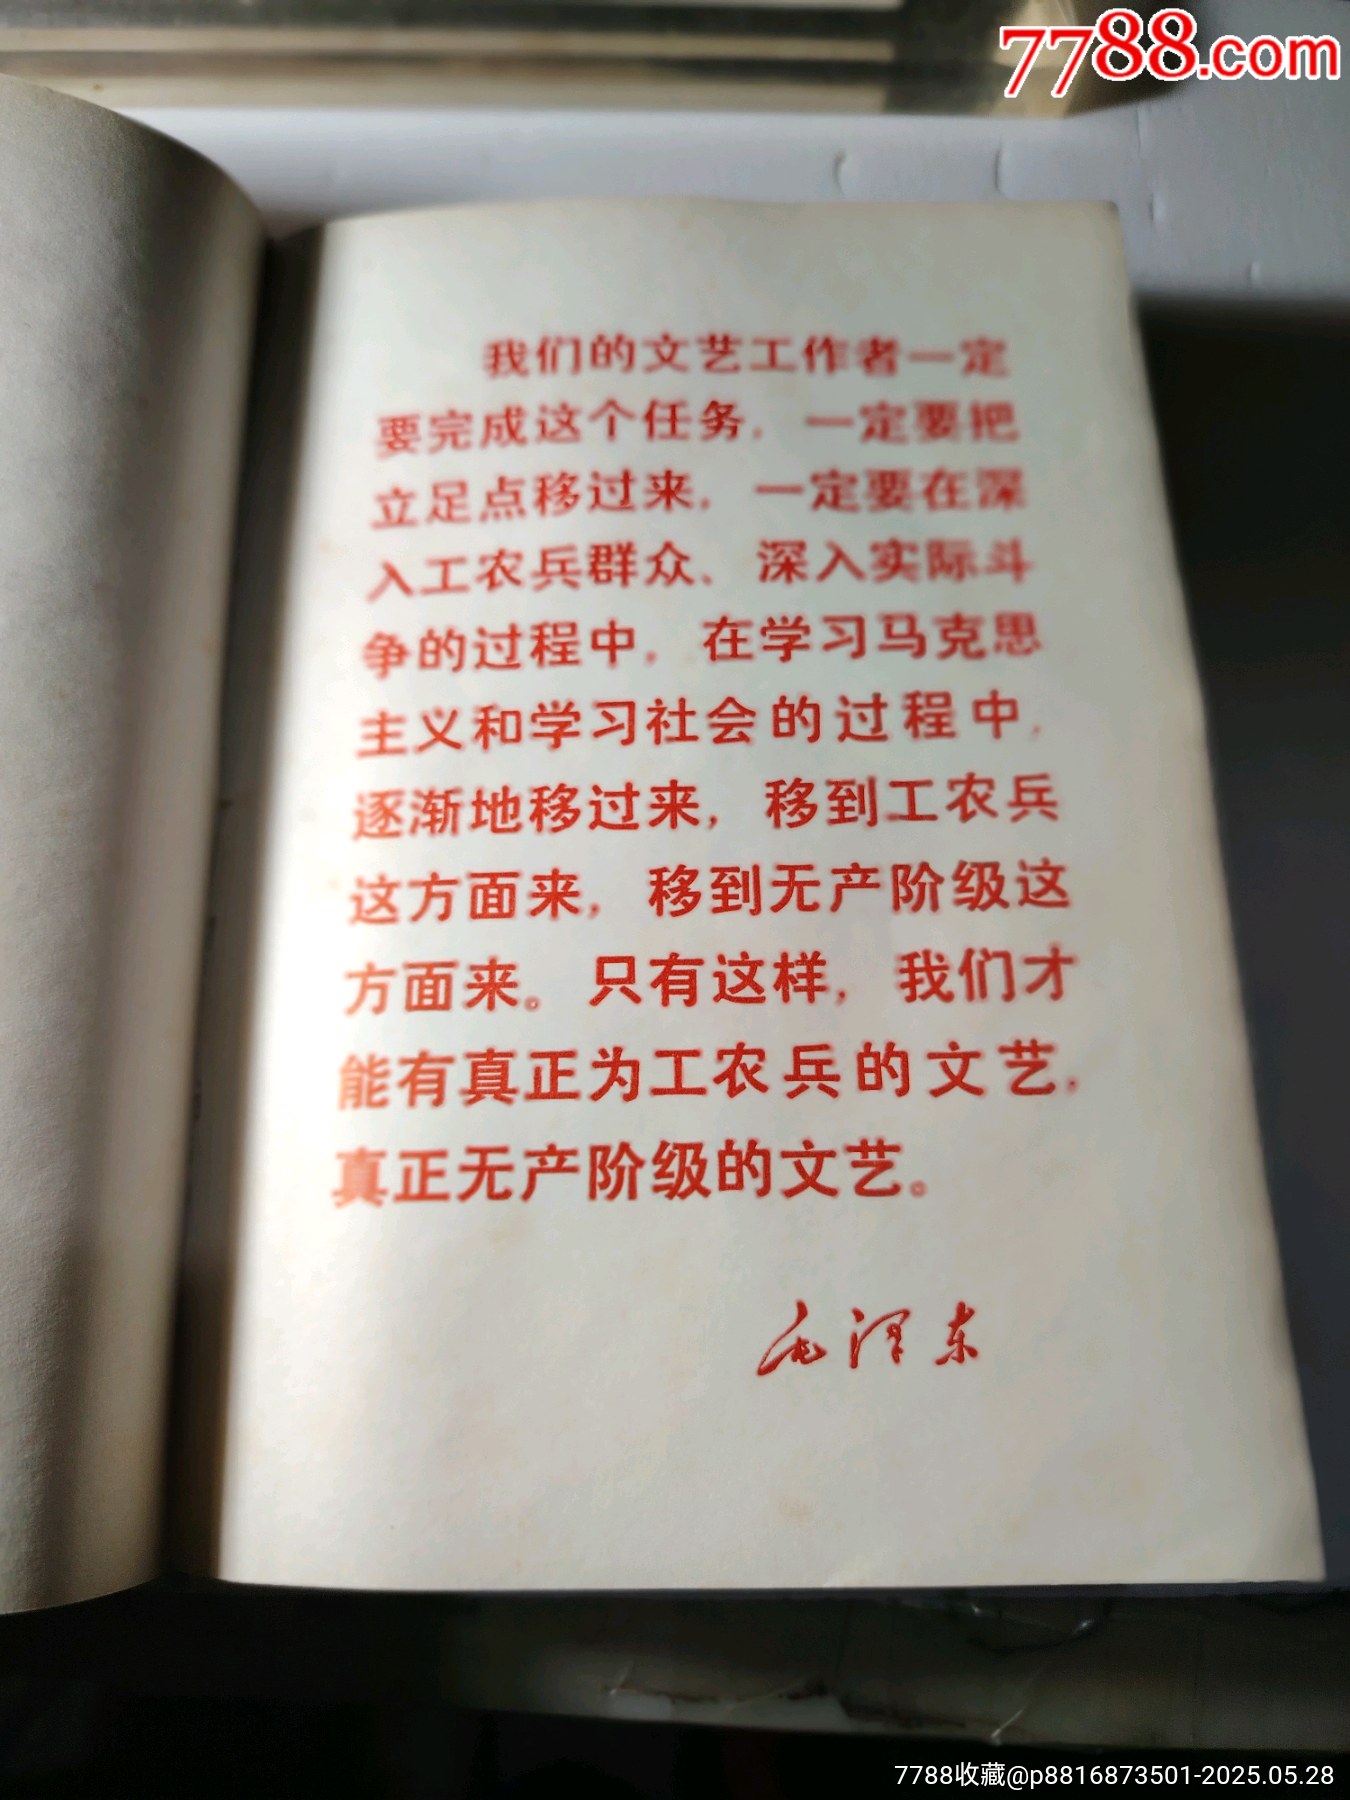 7788.com
我们的文艺工作者一定
要完成这个任务，一定要把
立足点移过来，一定要在深
入工农兵群众、深入实际斗
争的过程中，在学习马克思
主义和学习社会的过程中，
逐渐地移过来，移到工农兵
这方面来，移到无产阶级这
方面来。只有这样，我们才
能有真正为工农兵的文艺，
真正无产阶级的文艺。
毛泽东
7788收藏@p8816873501-2025.05.28